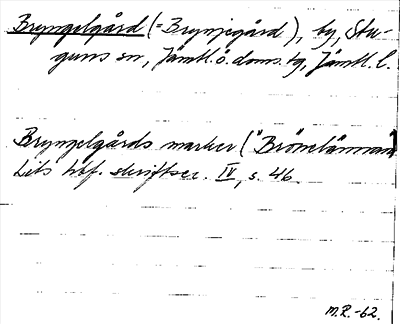 Bryngelgård (= Brynjegård), by, Stu-
guns sn, Jämtl. ö. doms. tg, Jämtl. l.
Bryngelgårds marker ("Brönelännan
Lits hbf. skriftser. IV, s. 46.
M.R.-62.